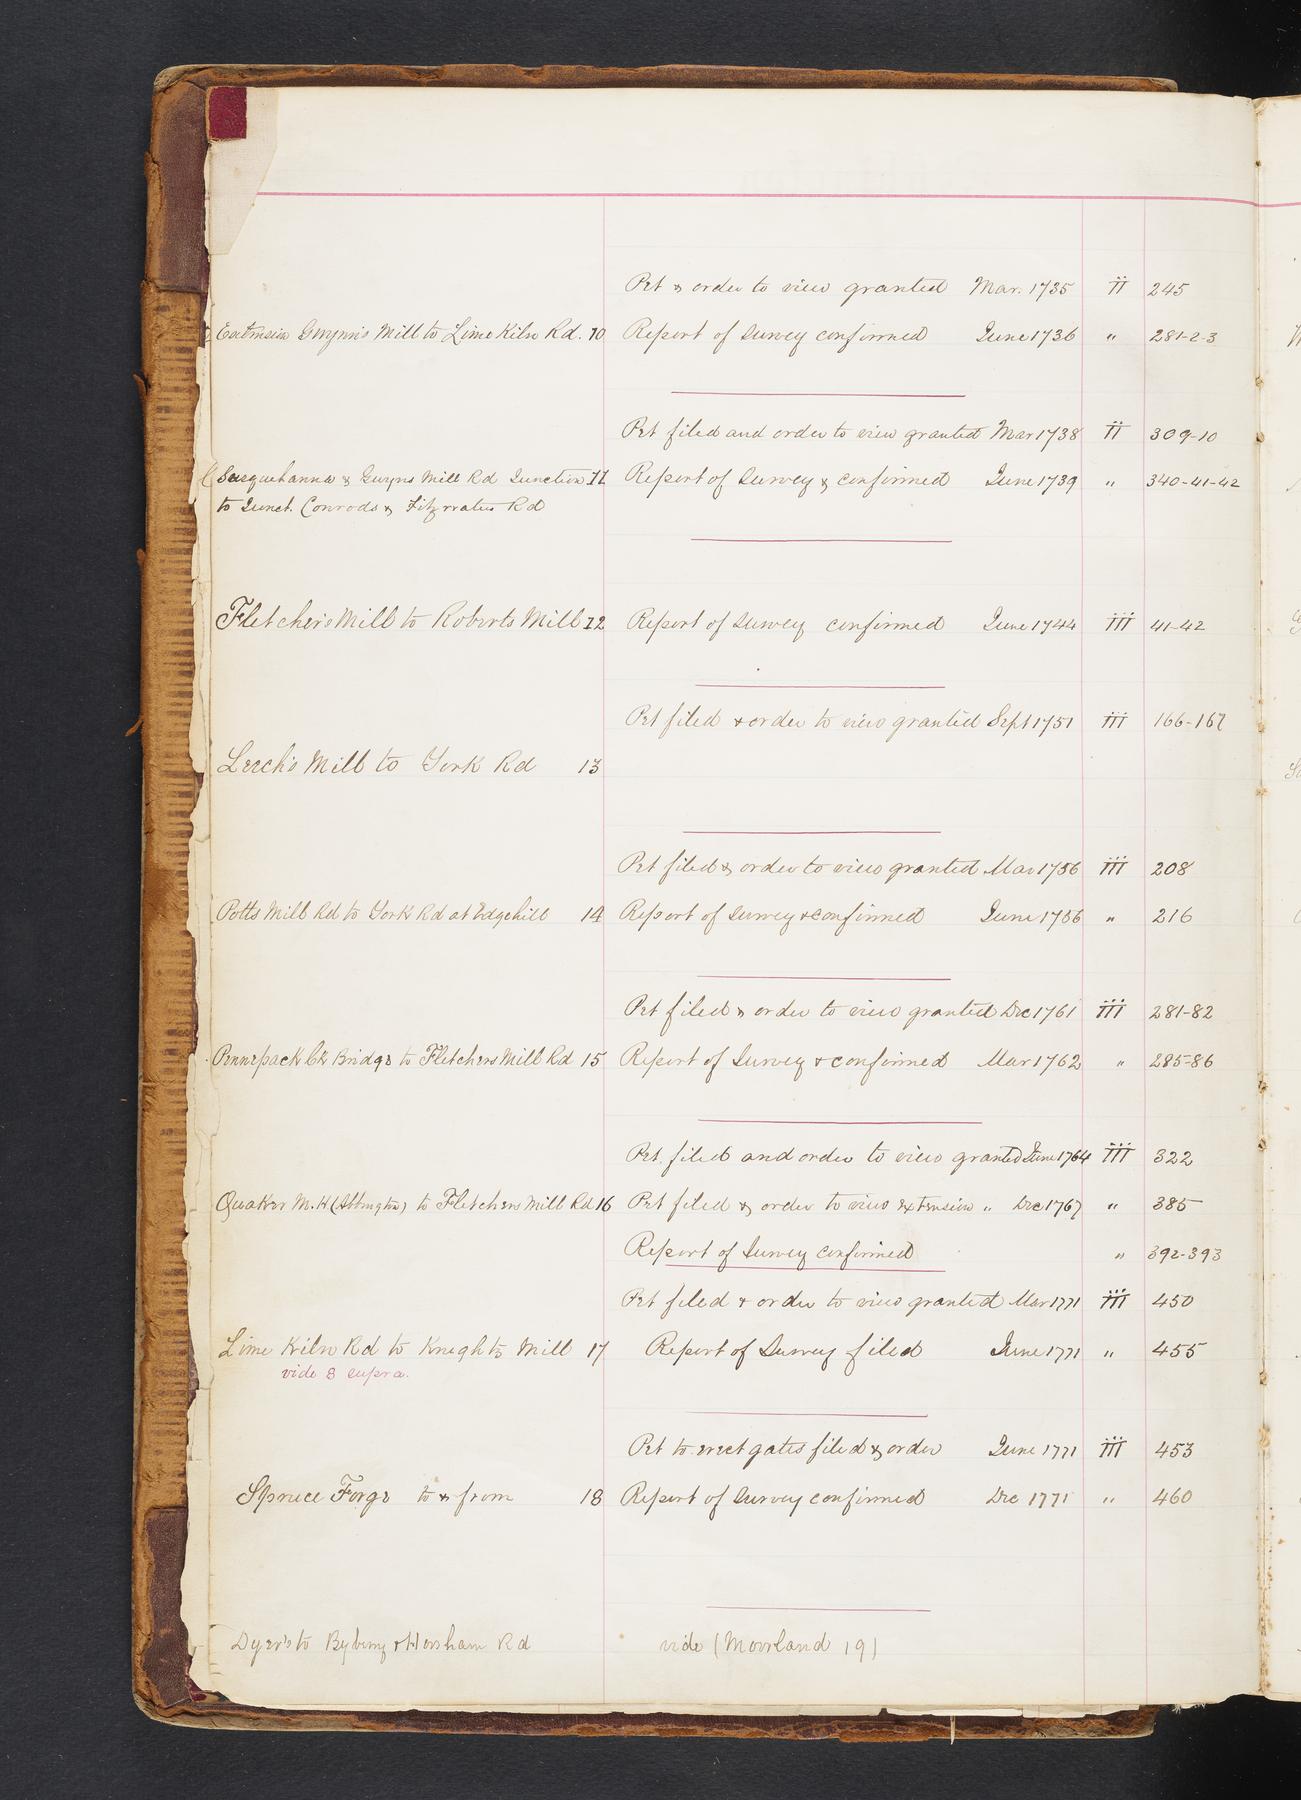 Pet & order to view granted Mar. 1735 ii 245
Extension Gwynn's Mill to Lime Kiln Rd. 10 Report of Survey confirmed June 1736 " 281-2-3
Pet filed and order to view granted Mar 1738 ii 309-10
Susquehanna & Gwyns Mill Rd Junction 11 Report of Survey & confirmed June 1739 " 340-41-42
to Junct. Conrods & Fitzwater Rd
Fletcher's Mill to Roberts Mill 12 Report of Survey confirmed June 1744 iii 41-42
Pet filed & order to view granted Sept 1751 iii 166-167
Leech's Mill to York Rd 13
Pet filed & order to view granted Mar 1756 iii 208
Potts Mill Rd to York Rd at Edgehill 14 Report of Survey & confirmed June 1756 " 216
Pet filed & order to view granted Dec 1761 iii 281-82
Pennepack Ck Bridge to Fletchers Mill Rd 15 Report of Survey & confirmed Mar 1762 " 285-86
Pet filed and order to view granted June 1764 iii 322
Quaker M.H (Abbington) to Fletchers Mill Rd 16 Pet filed & order to view extension " Dec 1767 " 385
Report of Survey confirmed " 392-393
Pet filed & order to view granted Mar 1771 iii 450
Lime Kiln Rd to Knights Mill 17 Report of Survey filed June 1771 " 455
vide 8 supra.
Pet to erect gates filed & order June 1771 iii 453
Spruce Forge to & from 18 Report of Survey confirmed Dec 1771 " 460
Dyer's to Byberry & Horsham Rd vide (Moorland 19)